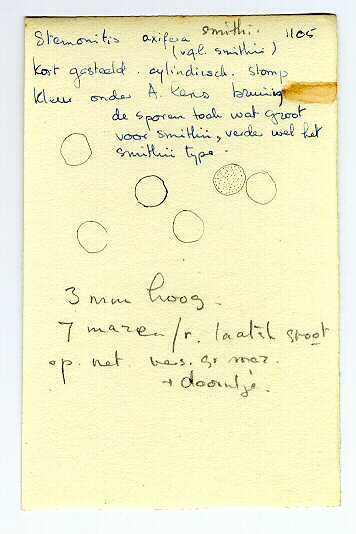 Stemonitis axifera smithii. 1105
(vgl. smithii)
kort gesteeld. cylindrisch. stomp
kleur onder A. Kens bruinig
de sporen toch wat groot
voor smithii, verder wel het
smithii type.
3 mm hoog.
7 mazen/r. laatste groot
op. net.
+ doorntje.